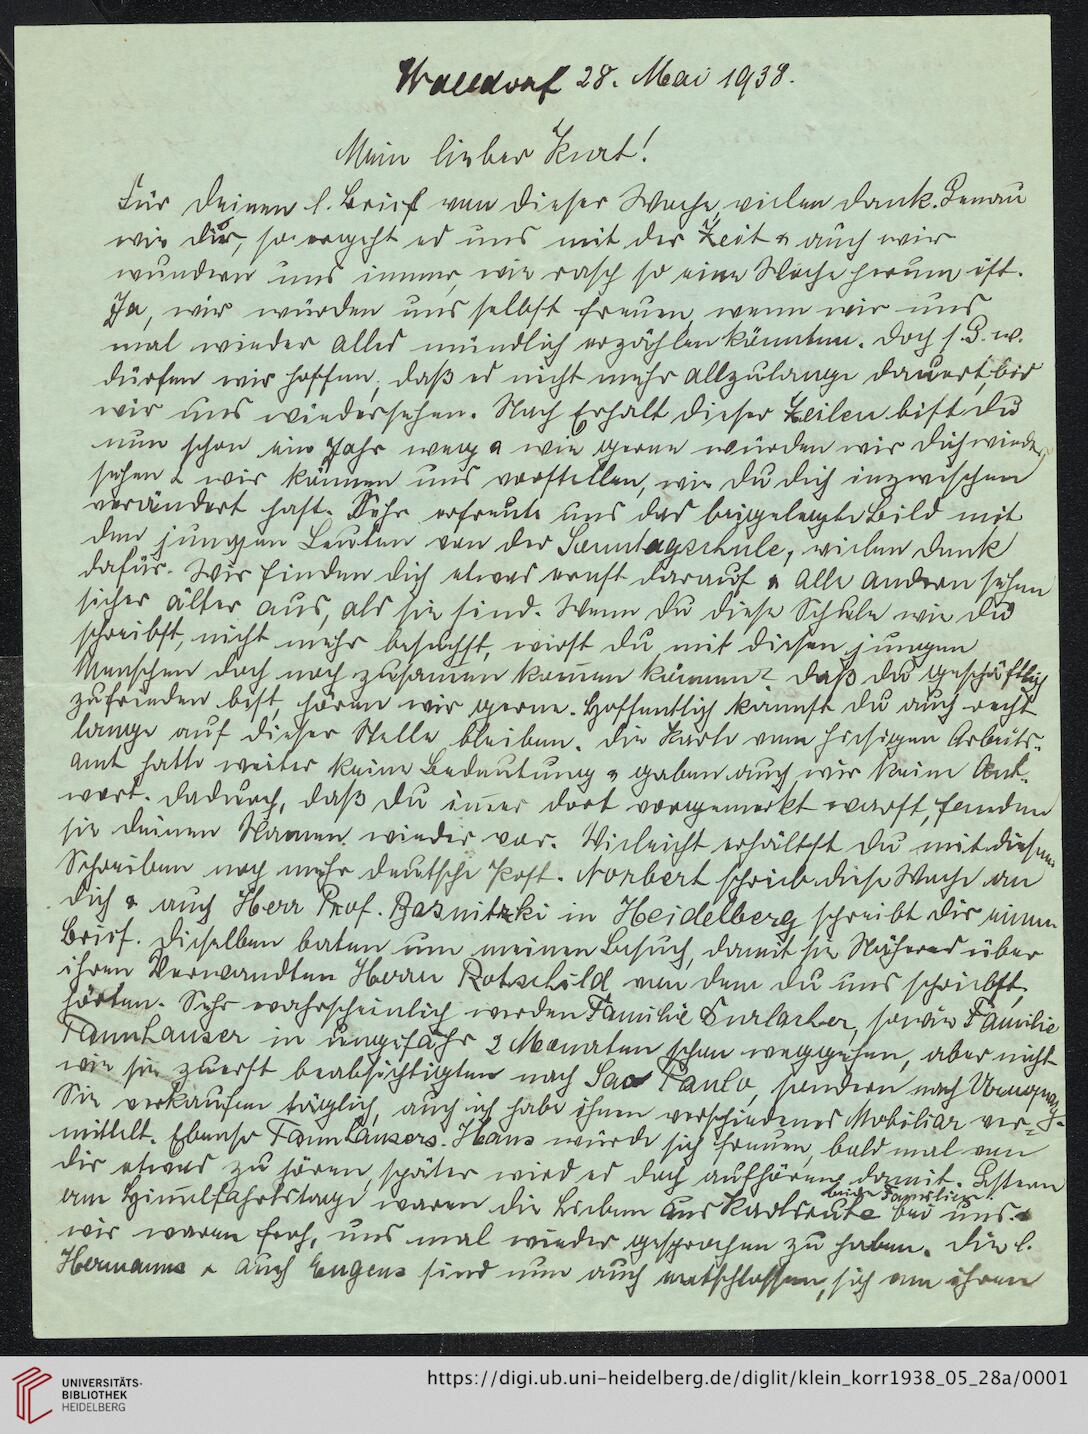 Walldorf 28. Mai 1938.
Mein lieber Kurt!
Für deinen l. Brief von dieser Woche, vielen Dank. Genau
wie dir, so ergeht es uns mit der Zeit & auch wir
wundern uns immer, wie rasch so eine Woche herum ist.
Ja, wir würden uns selbst freuen, wenn wir uns
mal wieder alles mündlich erzählen könnten. Doch s. G. w.
dürfen wir hoffen, daß es nicht mehr allzulange dauert, bis
wir uns wiedersehen. Nach Erhalt dieser Zeilen bist du
nun schon ein Jahr weg & wie gerne würden wir dich wieder
sehen & wir können uns vorstellen, wie du dich inzwischen
verändert hast. Sehr erfreute uns das beigelegte Bild mit
den jungen Leuten von der Sonntagschule, vielen Dank
dafür. Wir finden dich etwas ernst darauf & alle andern sehen
sicher älter aus, als sie sind. Wenn du diese Schule wie du
schreibst, nicht mehr besuchst, wirst du mit diesen jungen
Menschen doch noch zusam̅en kom̅en können? Daß du geschäftlich
zufrieden bist, hören wir gerne. Hoffentlich kannst du auch recht
lange auf dieser Stelle bleiben. Die Karte vom hiesigen Arbeits-
amt hatte weiter keine Bedeutung & gaben auch wir keine Ant-
wort. Dadurch, daß du im̅er dort vorgemerkt warst, fanden
sie deinen Namen wieder vor. Vieleicht erhältst du mit diesem
Schreiben noch mehr deutsche Post. Norbert schrieb diese Woche an
dich & auch Herr Prof. Rosnitzki in Heidelberg schreibt dir einen
Brief. Dieselben baten um meinen Besuch, damit sie Näheres über
ihren Verwandten Herrn Rotschild von dem du uns schriebst,
hörten. Sehr wahrscheinlich werden Familie Durlacher, sowie Familie
Tannhauser in ungefähr 2 Monaten schon weggehen, aber nicht
wie sie zuerst beabsichtigten nach Sao Paulo, sondern nach Uruguay.
Sie verkaufen täglich, auch ich habe ihnen verschiedenes Mobiliar ver-
mittelt. Ebenso Tannhausers. Hans würde sich freuen, bald mal von
dir etwas zu hören, später wird es doch aufhören damit. Gestern
am Him̅elfahrtstage waren die Lieben aus Karlsruhe beide Familien bei uns &
wir waren froh, uns mal wieder gesprochen zu haben. Die l.
Hermanns & auch Eugens sind nun auch entschlossen, sich um ihren
UNIVERSITÄTS-
BIBLIOTHEK
HEIDELBERG
https://digi.ub.uni-heidelberg.de/diglit/klein_korr1938_05_28a/0001